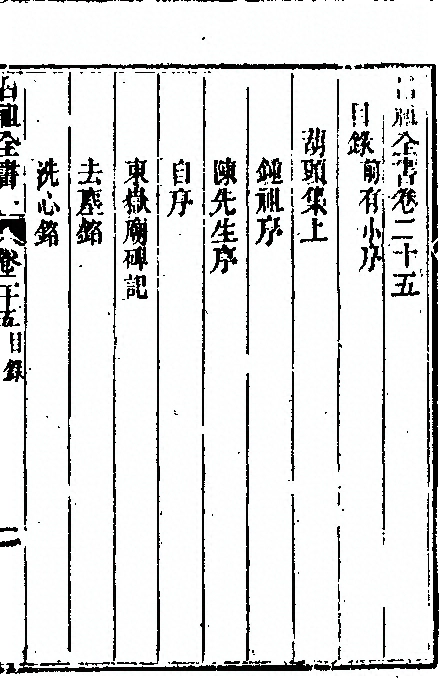 呂祖全書卷二十五
目錄 前有小序
葫頭集上
鍾祖序
陳先生序
自序
東嶽廟碑記
去塵銘
洗心銘
呂祖全書 卷二十五目錄 一